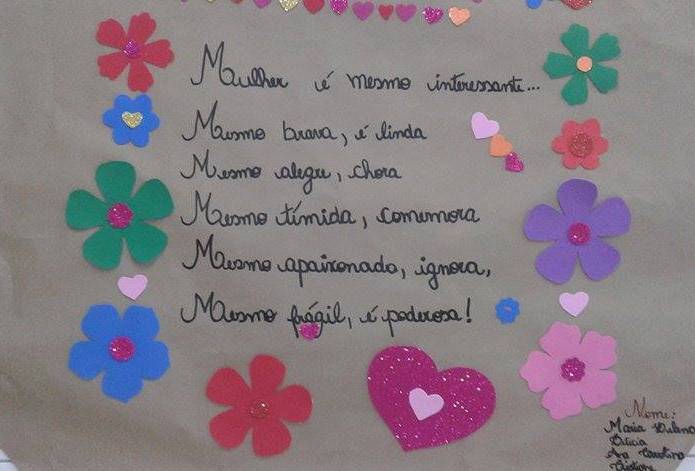 Mulher é mesmo interessante...
Mesmo brava, é linda
Mesmo alegre, chora
Mesmo tímida, comemora
Mesmo apaixonada, ignora,
Mesmo frágil, é poderosa!
Nome:
Maria
Letícia
Ana Carolina